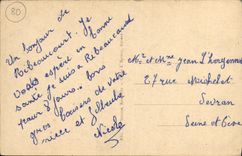 80
Un bonjour de
Ribeaucourt. Je
vous espère en bonne
santé je suis a Ribeaucourt
pour 8 jours. bons
gros baisers de votre
nièce et
Nicole
Mr et Mme Jean
27 rue Michelet
Sevran
Seine et Oise